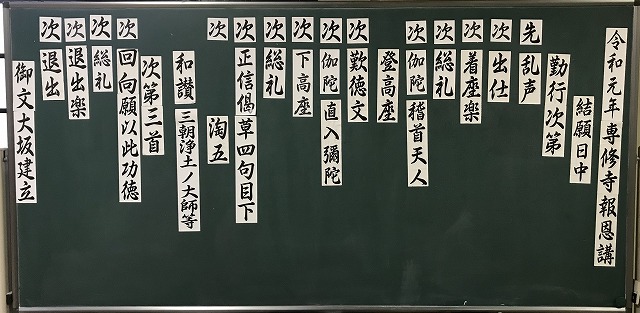 令和元年専修寺報恩講
結願日中
勤行次第
先 乱声
次 出仕
次 着座楽
次 総礼
次 伽陀 稽首天人
登高座
次 歎徳文
次 伽陀 直入彌陀
次 下高座
次 総礼
次 正信偈 草四句目下
次 淘五
和讃 三朝浄土ノ大師等
次第三首
次 回向願以此功徳
次 総礼
次 退出楽
次 退出
御文大坂建立